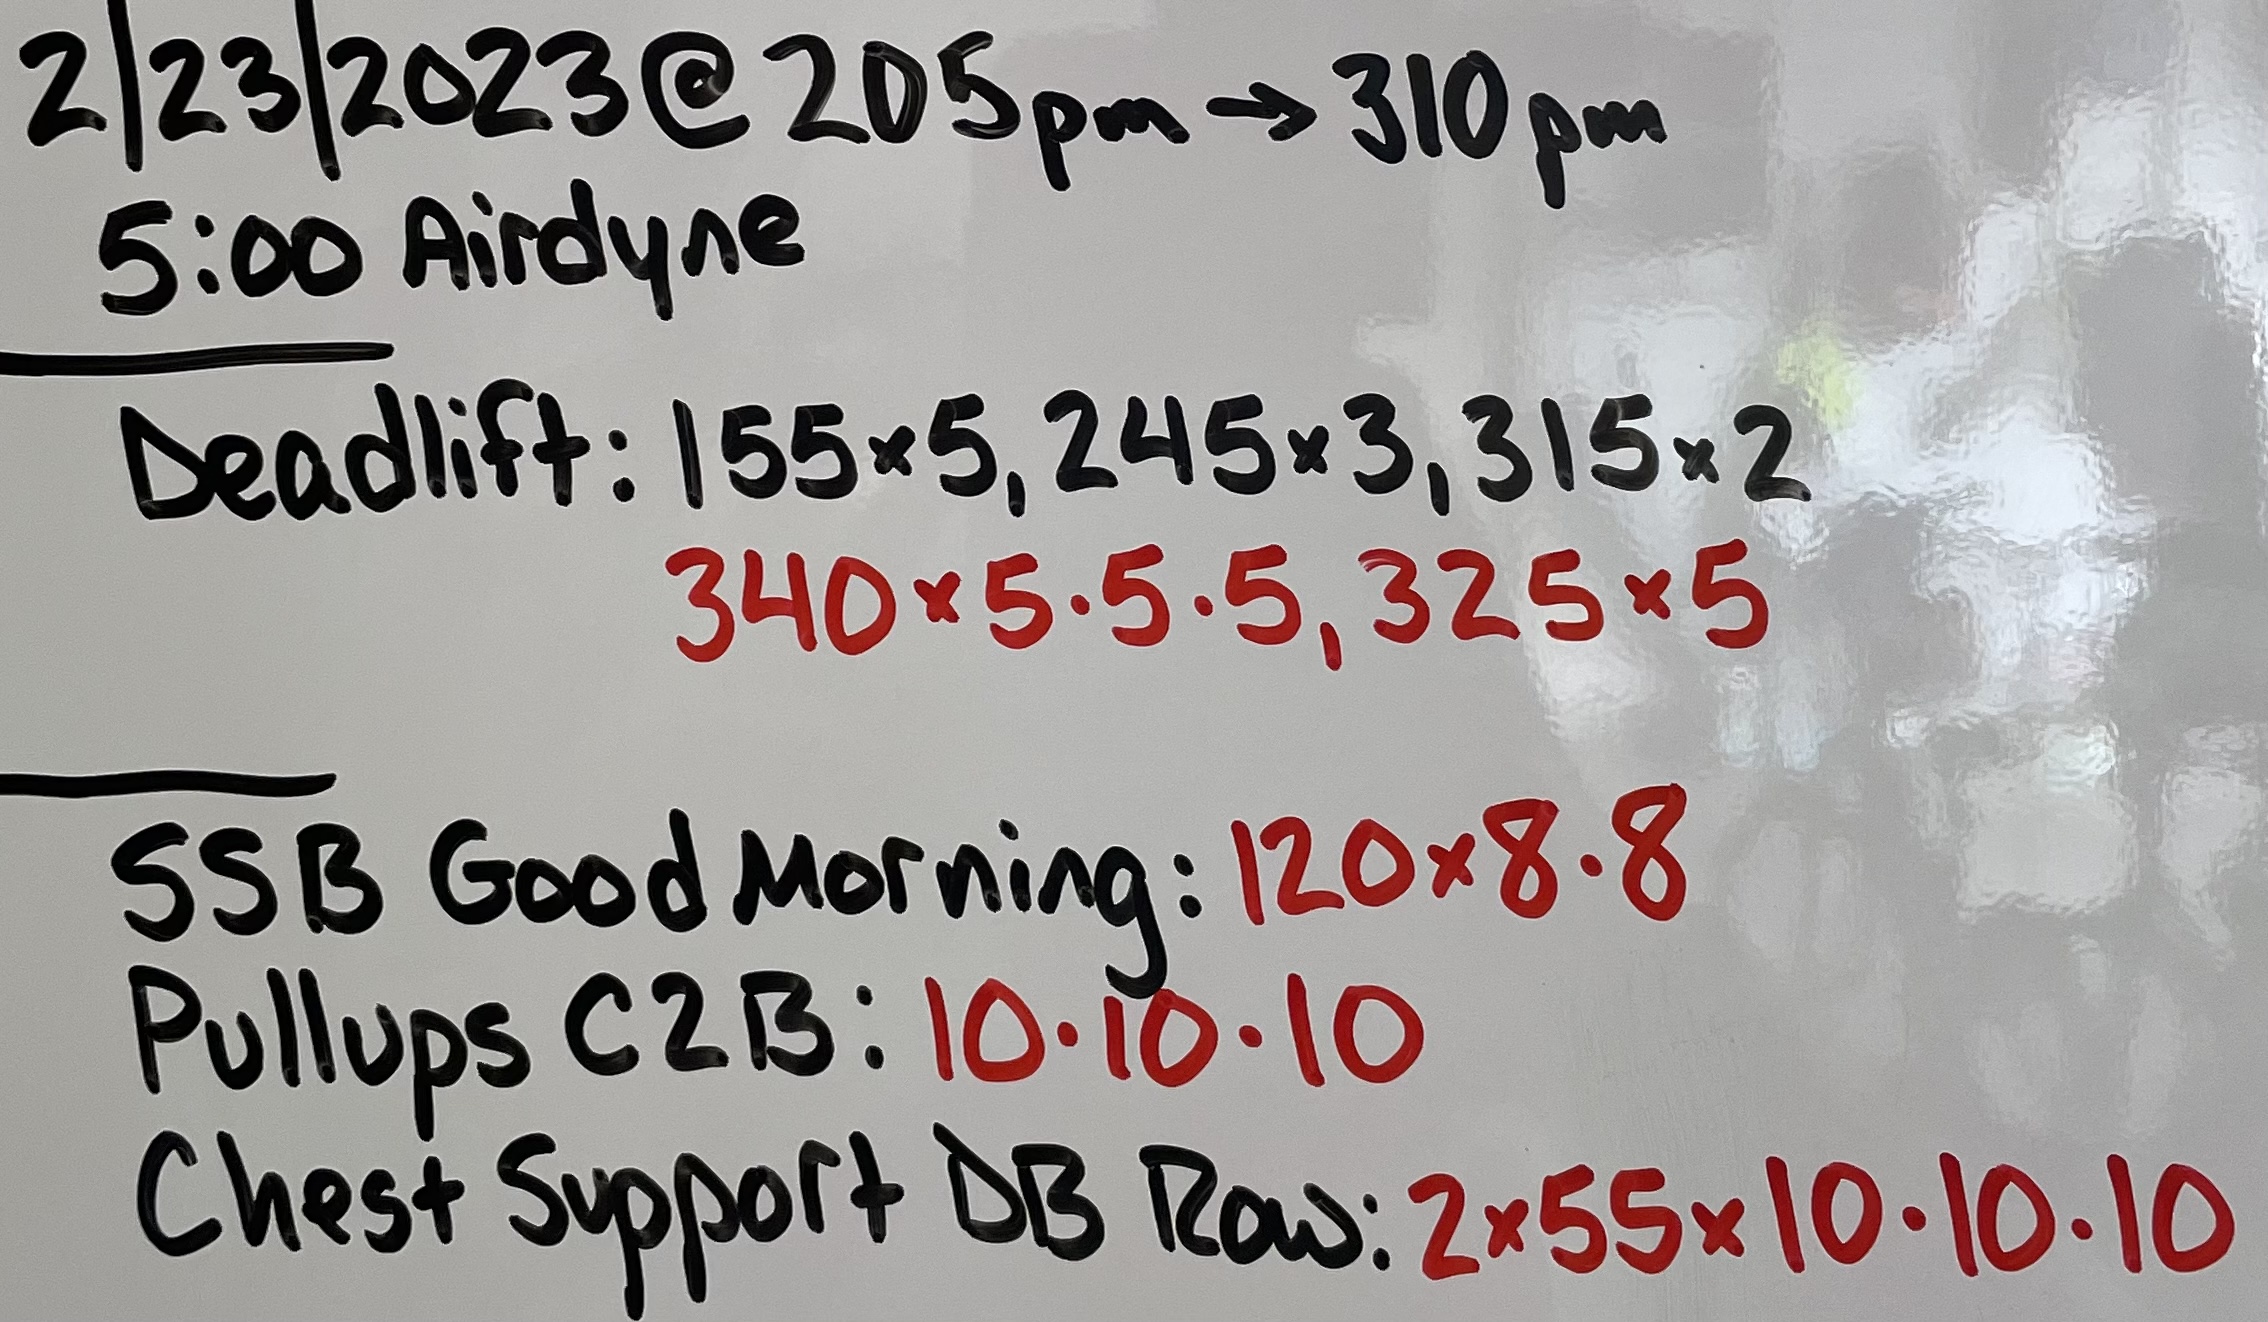 2/23/2023 @ 205pm → 310pm
5:00 Airdyne
Deadlift: 155×5, 245×3, 315×2
340×5·5·5, 325×5
SSB Good Morning: 120×8·8
Pullups C2B: 10·10·10
Chest Support DB Row: 2×55×10·10·10